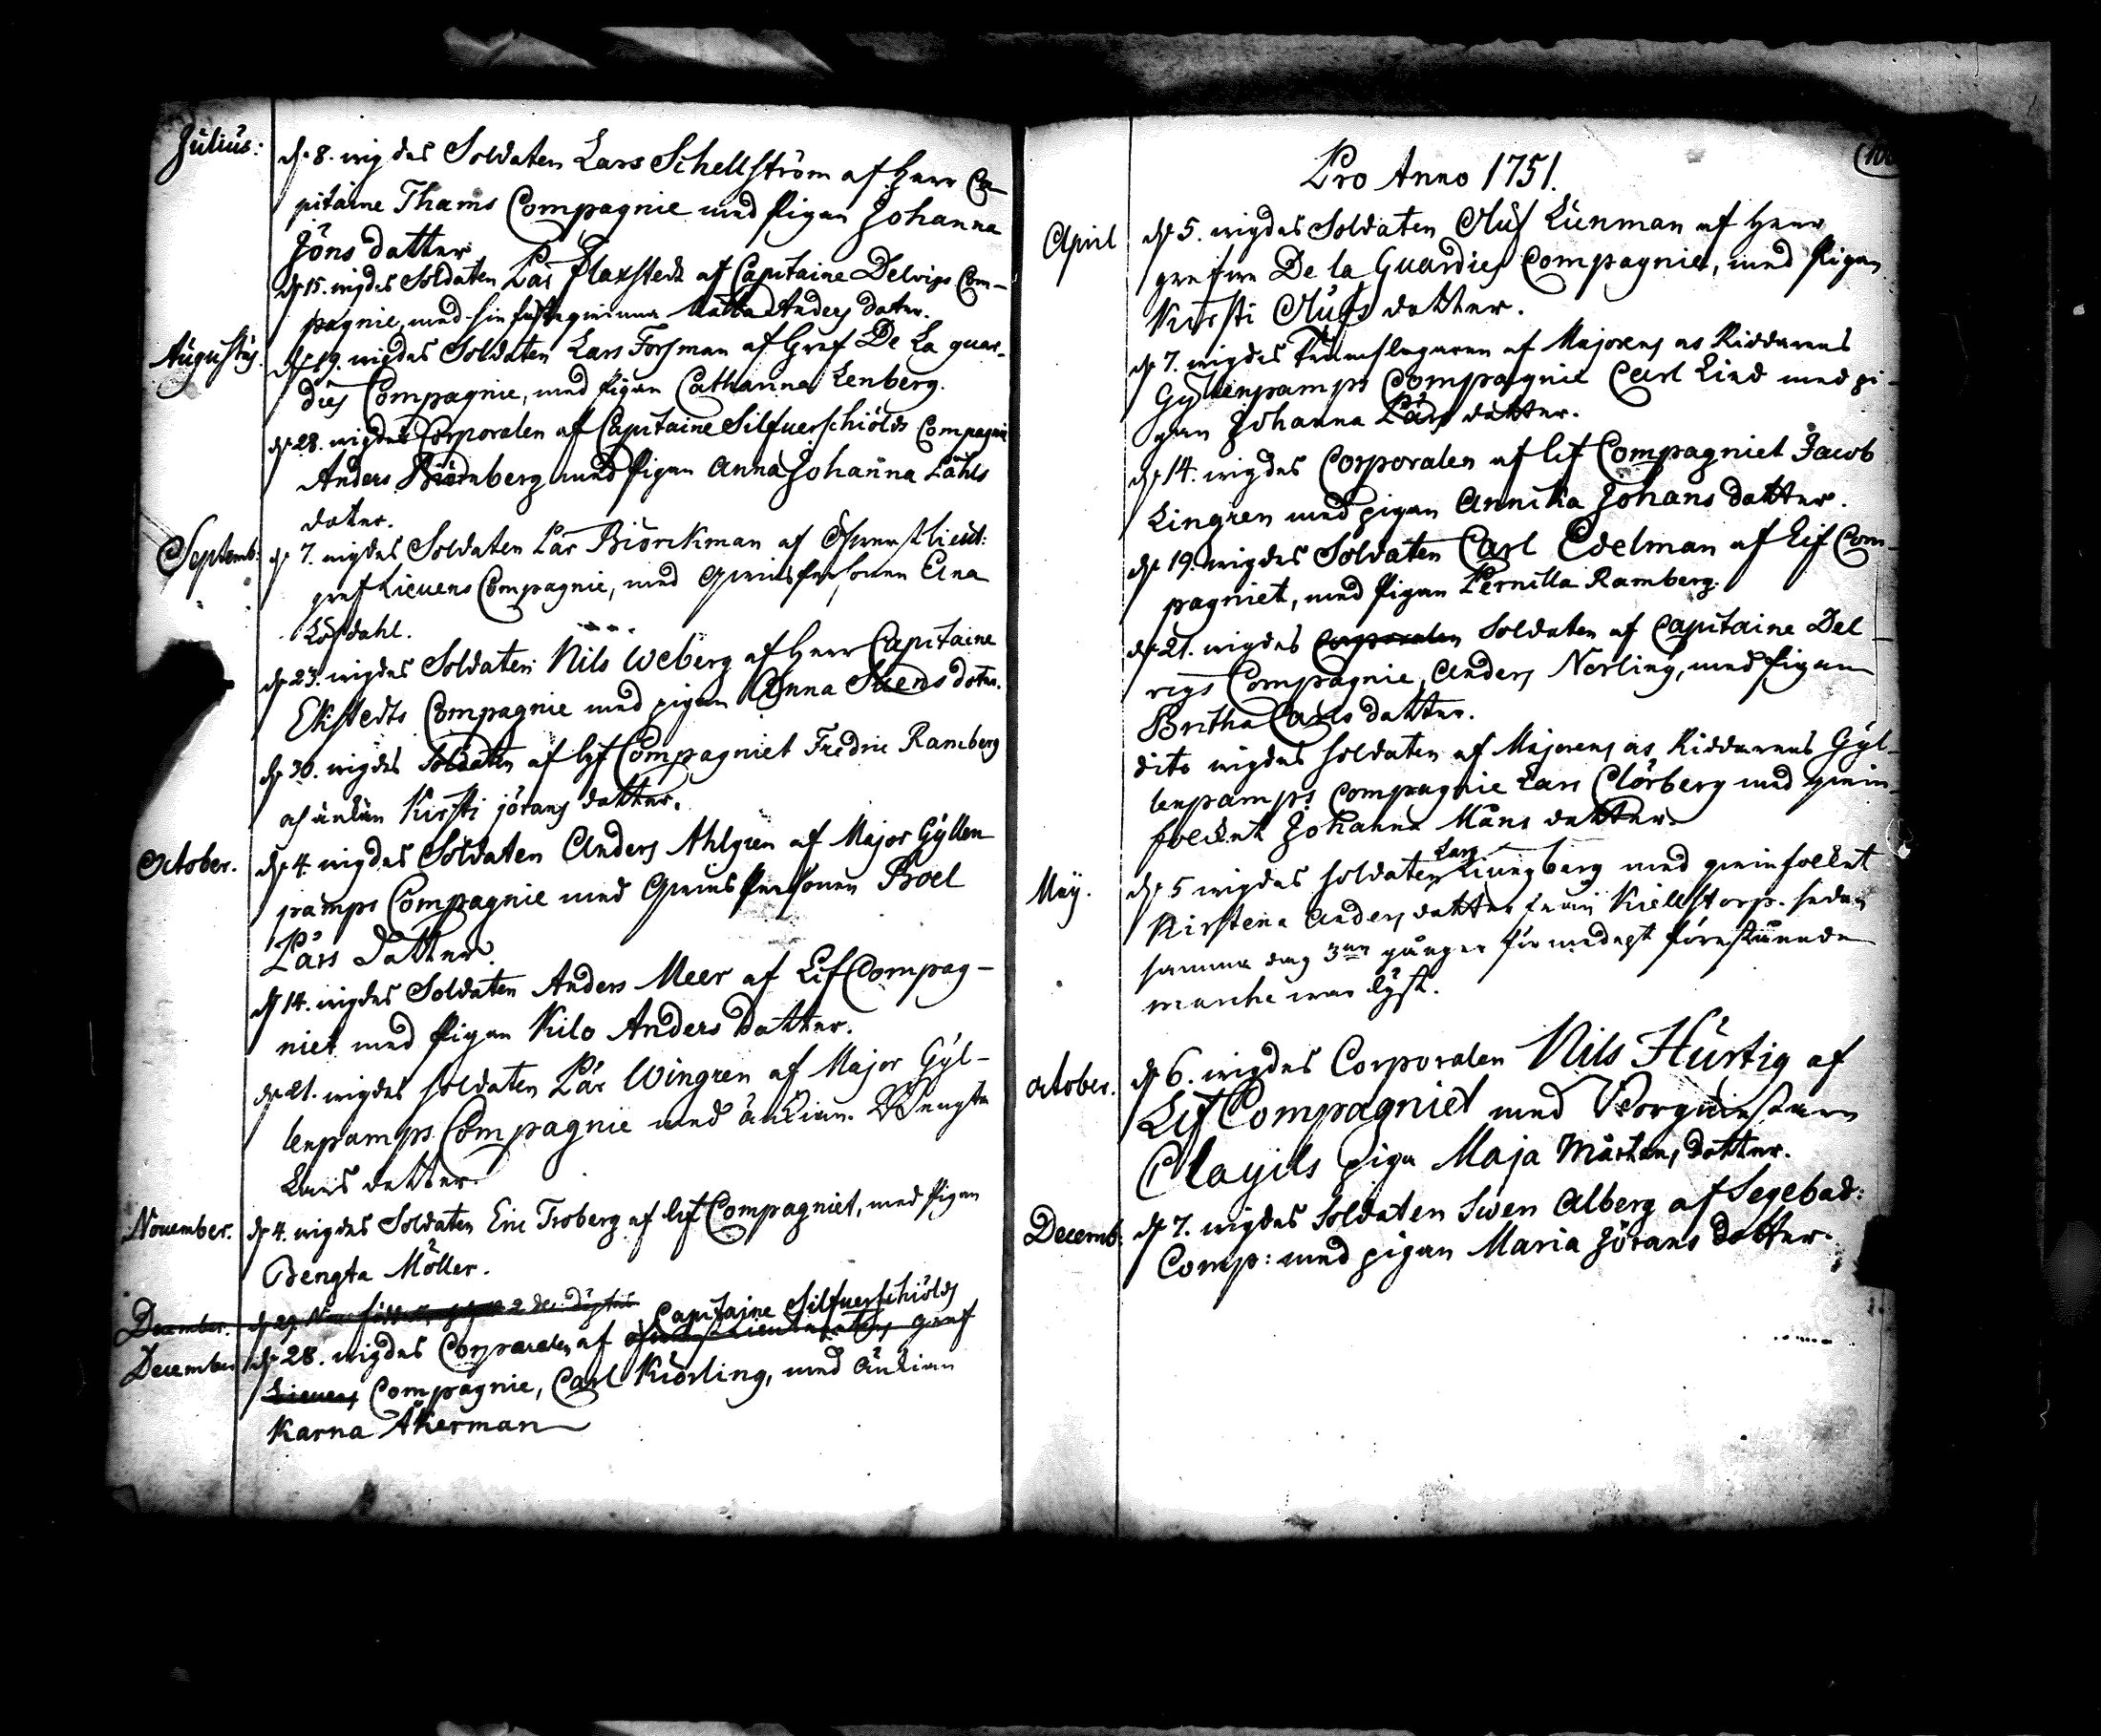 Julius: d. 8. wigdes Soldaten Lars Schellström af Herr Ca-
pitaine Thams Compagnie med Pigan Johanna
Jöns datter
d. 15. wigdes Soldaten Pär Flaxstedt af Capitaine Delwigs Com-
pagnie, med sin Anders doter.
Augustus. d. 19. wigdes Soldaten Lars Forsman af Gref De La guar-
dies Compagnie, med Pigan Catharina Lenberg.
d. 28. wigdes Corporalen af Capitaine Silfuerschiölds Compagnie
Anders Biörnberg med Pigan Anna Johanna Påhls
doter.
Septemb: d. 7. wigdes Soldaten Pär Biörckman af Öfwerstlieut:
gref Lieuens Compagnie, med Qwinspersonen Elna
Löfdahl.
d. 23. wigdes Soldaten Nils Weberg af Herr Capitaine
Ekstedts Compagnie med pigan Anna Suens doter.
d. 30. wigdes Soldaten af Lif Compagniet Fredric Ramberg
och änkan Kirsti jörans datter.
October. d. 4. wigdes Soldaten Anders Ahlgren af Major Gyllen
pamps Compagnie med Qwinspersonen Boel
Pärs Datter.
d. 14. wigdes Soldaten Anders Meer af Lif Compag-
niet med Pigan Kilo Anders datter.
d. 21. wigdes soldaten Pär Wingren af Major Gyl-
lenpamps Compagnie med änkian Bengta
Lars datter
November. d. 4. wigdes Soldaten Eric Troberg af Lif Compagniet, med Pigan
Bengta Möller.
December. d. 29. Nov.
Capitaine Silfuerschiölds
December d. 28. wigdes Corporalen af Öfwerstlieutenanten gref
Lieuens Compagnie, Carl Kiörling, med änkian
Karna Åkerman
100
Pro Anno 1751.
April d. 5. wigdes Soldaten Oluf Lunman af Herr
grefwe De la Guardies Compagnie, med Pigan
Kirsti Olufs datter.
d. 7. wigdes Trumslagaren af Majorens och Riddarens
Gyllenpamps Compagnie Carl Lind med pi-
gan Johanna Pärs datter.
d. 14. wigdes Corporalen af Lif Compagniet Jacob
Lingren med pigan Annika Johans datter.
d. 19. wigdes Soldaten Carl Edelman af Lif Com-
pagniet, med Pigan Pernilla Ramberg.
d. 21. wigdes Corporalen Soldaten af Capitaine Del-
wigs Compagnie, Anders Norling, med Pigan
Britha Carls datter.
dito wigdes soldaten af Majorens och Riddarens Gyl-
lenpamps Compagnie Lars Clörberg med qwin-
folcket Johanna Måns datter
Lars
May. d. 5 wigdes soldaten Liungberg med qwinfolcket
Kirstena Anders datter från Kiellstorp. sedan
samma dag 3ne gånger för medelst förestående
marche war lyst.
October. d. 6. wigdes Corporalen Nils Hurtig af
Lif Compagniet med
piga Maja Mårtens dotter.
Decemb: d. 7. wigdes Soldaten Swen Alberg af Segebad:
Comp: med pigan Maria Jörans dotter.